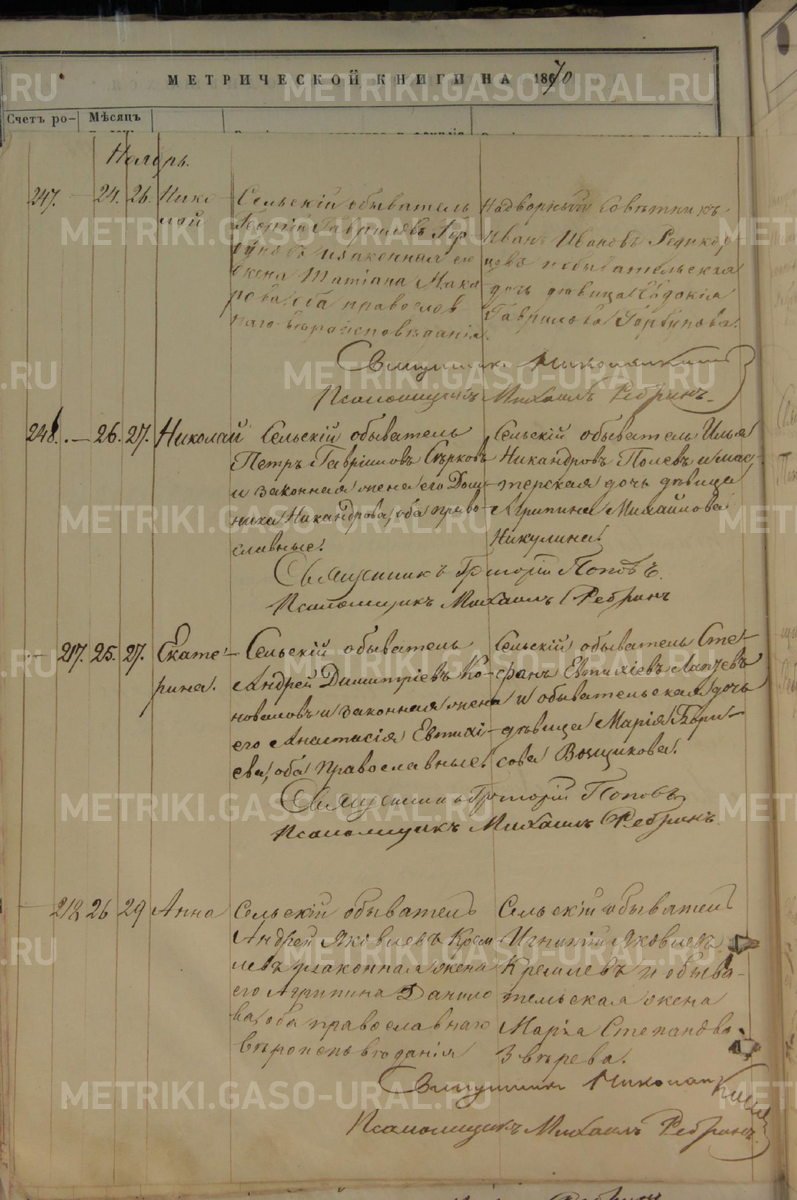 МЕТРИЧЕСКОЙ КНИГИ НА 1870
Счетъ ро-
Мѣсяцъ
Ноябрь.
247. — 24. 26. Нико-
лай
Сельскій обыватель
Гавриловъ Гор-
буновъ и законная его
жена Татіана Мака-
рова оба православ-
наго вѣроисповѣданія.
Надворный Совѣтникъ
Иванъ Ивановъ Редикор-
цевъ и обывательская
дочь дѣвица Евдокія
Гаврилова Горбунова.
Священникъ Николай
Псаломщикъ Михаилъ Ребринъ
248. — 26. 27. Николай
Сельскій обыватель
Петръ Гавріиловъ
и законная жена его Дом-
ника Никандрова, оба право-
славные.
Сельскій обыватель Илья
Никандровъ Полевъ и мас-
терская дочь дѣвица
Агрипина Михайлова
Никулина.
Священникъ Григорій Поповъ.
Псаломщикъ Михаилъ Ребринъ
— 217. 25. 27. Екате-
рина.
Сельскій обыватель
Андрей Димитріевъ Ко-
новаловъ и законная жена
его Анастасія Евтихі-
ева, оба православные.
Сельскій обыватель Сте-
фанъ Евтихіевъ Лапчевъ
и обывательская дочь
дѣвица Марія Бори-
сова Вощикова.
Священникъ Григорій Поповъ
Псаломщикъ Михаилъ Ребринъ
— 218 26 29 Анна
Сельскій обыватель
Андрей Яковлевъ Крем-
левъ и законная жена
его Агрипина Данило-
ва, оба православнаго
вѣроисповѣданія
Сельскій обыватель
Игнатій Яковлевъ
Кремлевъ и обыва-
тельская жена
Марія Степанова
Звѣрева.
Священникъ Николай
Псаломщикъ Михаилъ Ребринъ
METRIKI.GASO-URAL.RU